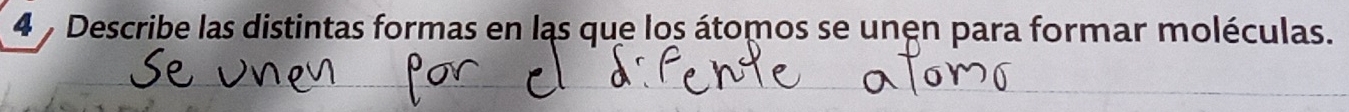 4 Describe las distintas formas en las que los átomos se unen para formar moléculas.
Se unen por el difente atomo